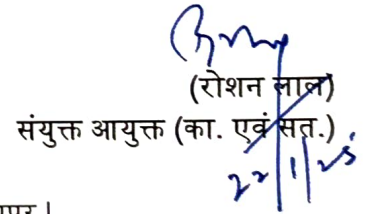 (रोशन लाल)
संयुक्त आयुक्त (का. एवं सत.)
22/1/25